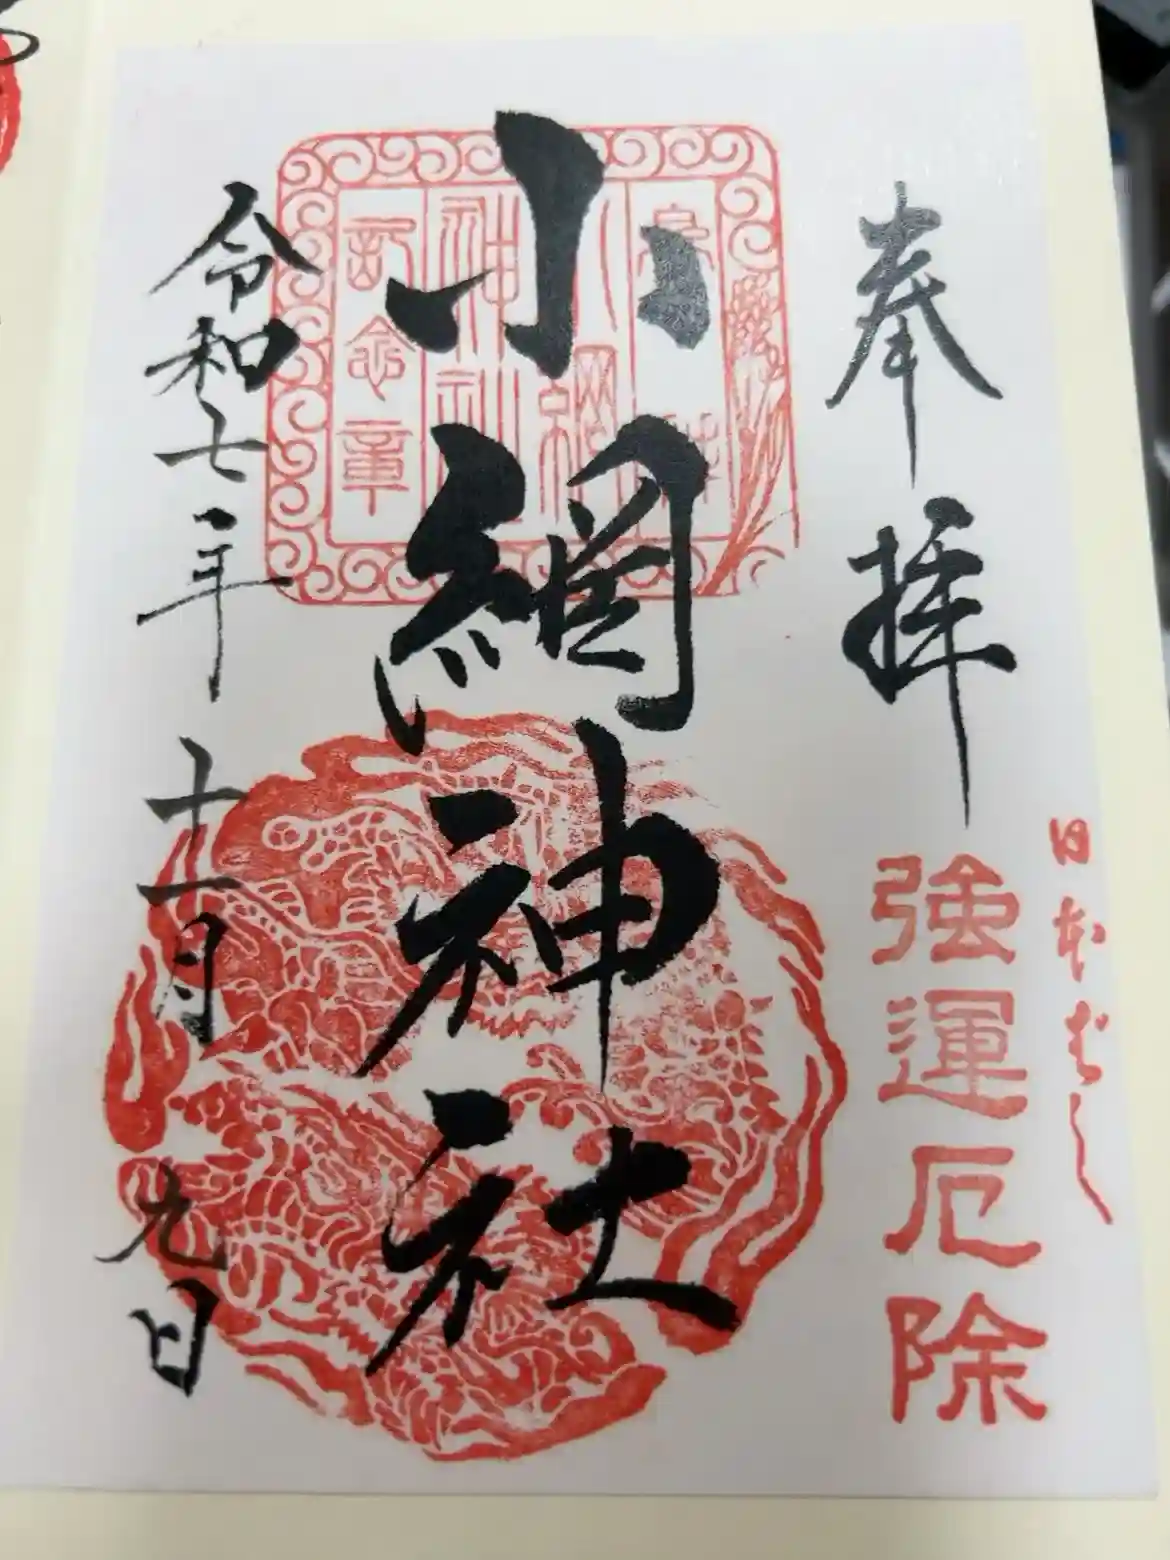 日本ばし
奉拝
強運厄除
小網神社
小網
神社
記念章
令和七年十一月九日